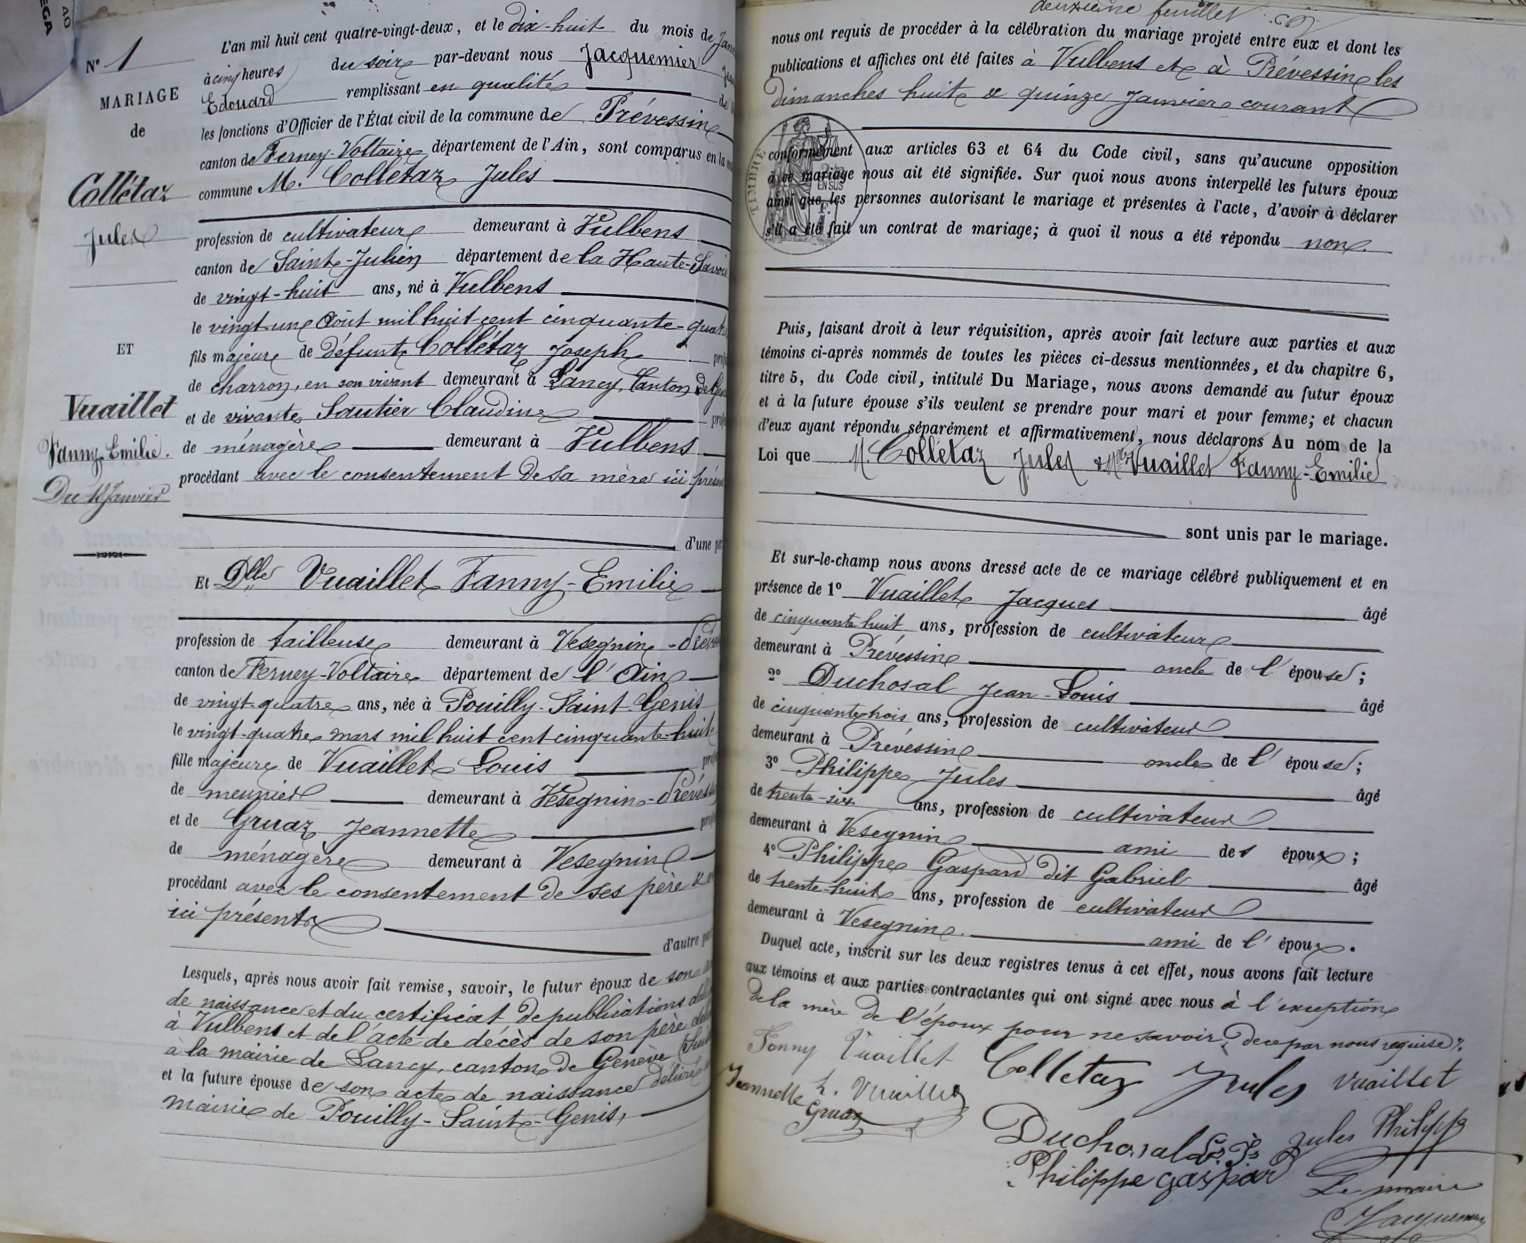 N° 1
MARIAGE
de
Collétaz
Jules
ET
Vuaillet
Fanny-Emilie.
Du 18 Janvier
L'an mil huit cent quatre-vingt-deux, et le dix-huit du mois de Janv
à cinq heures du soir par-devant nous Jacquemier
Edouard remplissant en qualité
les fonctions d'Officier de l'État civil de la commune de Prévessin
canton de Ferney-Voltaire département de l'Ain, sont comparus en la
commune M. Collétaz Jules
profession de cultivateur demeurant à Vulbens
canton de Saint-Julien département de la Haute-Savoie
de vingt-huit ans, né à Vulbens
le vingt-une Août mil huit cent cinquante-quat
fils majeur de défunt Collétaz Joseph
de charron, en son vivant demeurant à Lancy, Canton de Ge
et de vivante Sautier Claudine
de ménagère demeurant à Vulbens
procédant avec le consentement de sa mère ici prés
d'une par
Et Dlle Vuaillet Fanny-Emilie
profession de tailleuse demeurant à Vesegnin-Préve
canton de Ferney-Voltaire département de l'Ain
de vingt-quatre ans, née à Pouilly-Saint-Genis
le vingt-quatre mars mil huit cent cinquante-huit
fille majeure de Vuaillet Louis
de meunier demeurant à Vesegnin-Prévess
et de Gruaz Jeannette
de ménagère demeurant à Vesegnin
procédant avec le consentement de ses père &
ici présents
d'autre par
Lesquels, après nous avoir fait remise, savoir, le futur époux de son
de naissance et du certificat de publications
à Vulbens et de l'acte de décès de son père
à la mairie de Lancy, canton de Genève
et la future épouse de son acte de naissance délivré
mairie de Pouilly-Saint-Genis,
deuxième feuillet
nous ont requis de procéder à la célébration du mariage projeté entre eux et dont les
publications et affiches ont été faites à Vulbens et à Prévessin les
dimanches huit & quinze Janvier courant
TIMBRE
EN SUS
conformément aux articles 63 et 64 du Code civil, sans qu'aucune opposition
à ce mariage nous ait été signifiée. Sur quoi nous avons interpellé les futurs époux
ainsi que les personnes autorisant le mariage et présentes à l'acte, d'avoir à déclarer
s'il a été fait un contrat de mariage; à quoi il nous a été répondu non.
Puis, faisant droit à leur réquisition, après avoir fait lecture aux parties et aux
témoins ci-après nommés de toutes les pièces ci-dessus mentionnées, et du chapitre 6,
titre 5, du Code civil, intitulé Du Mariage, nous avons demandé au futur époux
et à la future épouse s'ils veulent se prendre pour mari et pour femme; et chacun
d'eux ayant répondu séparément et affirmativement, nous déclarons Au nom de la
Loi que M. Collétaz Jules & Mlle Vuaillet Fanny-Emilie
sont unis par le mariage.
Et sur-le-champ nous avons dressé acte de ce mariage célébré publiquement et en
présence de 1° Vuaillet Jacques âgé
de cinquante huit ans, profession de cultivateur
demeurant à Prévessin oncle de l'épouse;
2° Duchosal Jean-Louis âgé
de cinquante trois ans, profession de cultivateur
demeurant à Prévessin oncle de l'épouse;
3° Philippe Jules âgé
de trente-six ans, profession de cultivateur
demeurant à Vesegnin ami des époux;
4° Philippe Gaspard dit Gabriel âgé
de trente-huit ans, profession de cultivateur
demeurant à Vesegnin. ami de l'époux.
Duquel acte, inscrit sur les deux registres tenus à cet effet, nous avons fait lecture
aux témoins et aux parties contractantes qui ont signé avec nous à l'exception
de la mère de l'époux pour ne savoir, de ce par nous requise.
Fanny Vuaillet Colletaz Jules Vuaillet
Jeannette L. Vuaillet
Gruaz
Duchosal Ls Js Jules Philippe
Philippe gaspard
Le maire
Jacquemier